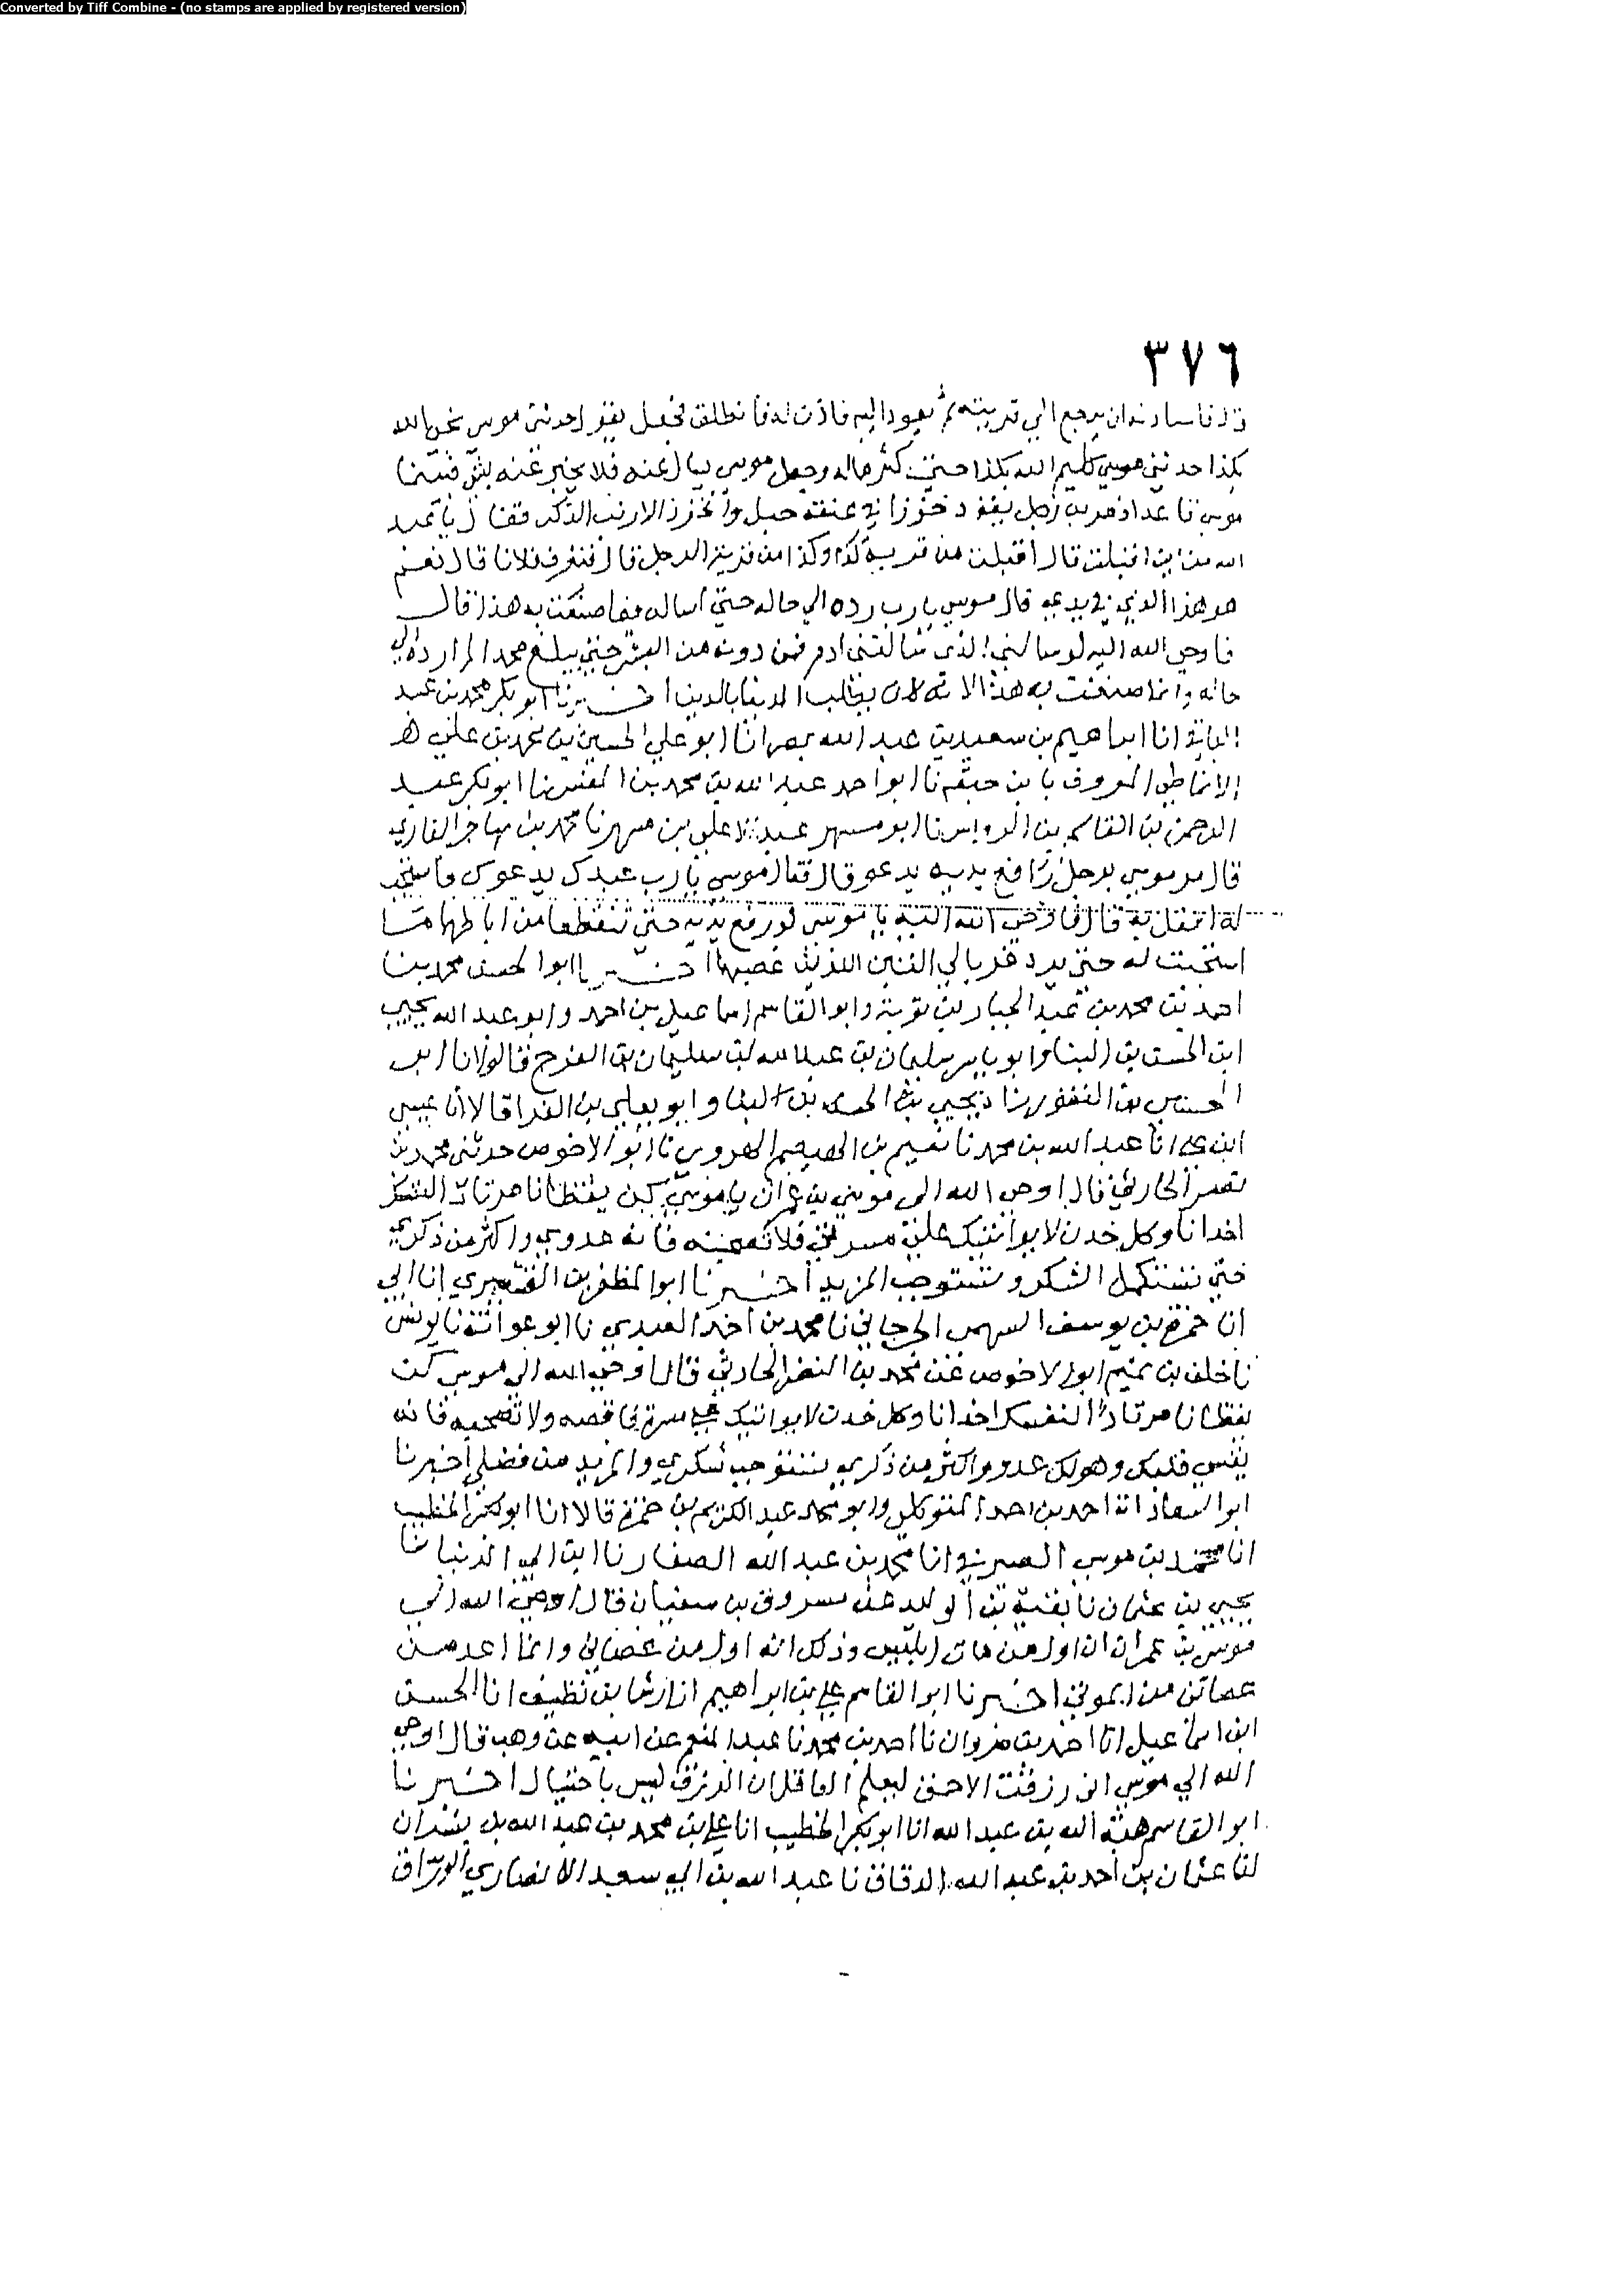 Converted by Tiff Combine - (no stamps are applied by registered version)
٣٧٦
فاستاذنه ان يرجع الي قريته ثم يعود اليه فاذن له فانطلق فجعل يقول حدثني موسي نجي الله
بكذا حدثني موسي كليم الله بكذا حتي كثر ماله وجعل موسي يسال عنه فلا يخبر عنه بشي فبينما
موسي قاعد اذ مر به رجل يقود خززا في عنقه حبل والخزز الارنب الذكر فقال يا عبد
الله من اين اقبلت قال اقبلت من قرية كذا وكذا من قرية الرجل قال فتعرف فلانا قال نعم
هو هذا الذي في يدي قال موسي يا رب رده الي حاله حتي اساله فيما صنعت به هذا قال
فاوحي الله اليه لو سالني الذي سالتني ادم فمن دونه من البشر حتي يبلغ محمدا لم ارده الي
حاله وانما صنعت به هذا لانه كان يطلب الدنيا بالدين اخبرنا ابو بكر محمد بن عبد
الباقي انا ابراهيم بن سعيد بن عبد الله بمصر انا ابو علي الحسين بن محمد بن علي
الانماطي المعروف بابن حبقه نا ابو احمد عبد الله بن محمد بن المفسر نا ابو بكر عبد
الرحمن بن القاسم بن الرواس نا ابو مسهر عبد الاعلي بن مسهر نا محمد بن مهاجر القاري
قال مر موسي برجل رافع يديه يدعو قال فقال موسي يا رب عبدك يدعوك فاستجب
له قال فاوحي الله اليه يا موسي لو رفع يديه حتي تنقطعا من اباطهما ما
استجبت له حتي يرد الي اللذين غصبهما اخبرنا ابو الحسن محمد بن
احمد بن محمد بن عبد الجبار بن توبة وابو القاسم اسماعيل بن احمد وابو عبد الله يحيي
ابن الحسن بن البنا وابو ياسر سليمان بن عبد الله بن سليمان بن الفرج قالوا انا ابو
الحسين بن النقور نا يحيي بن الحسن بن البنا وابو يعلي بن الفرا قالا انا عيسي
ابن علي انا عبد الله بن محمد نا نعيم بن الهيصم الهروي نا ابو الاحوص حدثني محمد بن
نضر الحارثي قال اوحي الله الي موسي بن عمران يا موسي كن يقظانا مرتادا لنفسك
اخدانا وكل خدن لا يواتيك علي مسرتي فلا تصحبنه فانه عدوي واكثر من ذكري
حتي تستكمل الشكر وتستوجب المزيد اخبرنا ابو المظفر بن القشيري انا ابي
انا حمزة بن يوسف السهمي الجرجاني نا محمد بن احمد العبدي نا ابو عوانة نا يونس
نا خلف بن تميم ابو الاحوص عن محمد بن النضر الحارثي قال اوحي الله الي موسي كن
يقظانا مرتادا لنفسك اخدانا وكل خدن لا يواتيك علي مسرتي فاقصه ولا تصحبه فانه
يقسي قلبك وهو لك عدو واكثر من ذكري تستوجب شكري والمزيد من فضلي اخبرنا
ابو السعادات احمد بن احمد المتوكلي وابو محمد عبد الكريم بن حمزة قالا انا ابو بكر الخطيب
انا محمد بن موسي الصيرفي انا محمد بن عبد الله الصفار نا ابن ابي الدنيا نا
يحيي بن عثمان نا بقية بن الوليد عن مسروق بن سفيان قال اوحي الله الي
موسي بن عمران ان اول من مات ابليس وذلك انه اول من عصاني وانما اعد من
عصاني من الموتي اخبرنا ابو القاسم علي بن ابراهيم انا رشا بن نظيف انا الحسن
ابن اسماعيل انا احمد بن مروان نا احمد بن محمد نا عبد المنعم عن ابيه عن وهب قال اوحي
الله الي موسي اني رزقت الاحمق ليعلم العاقل ان الرزق ليس باحتيال اخبرنا
ابو القاسم هبة الله بن عبد الله انا ابو بكر الخطيب انا علي بن محمد بن عبد الله بن بشران
انا عثمان بن احمد بن عبد الله الدقاق نا عبد الله بن ابي سعيد الانصاري الوراق